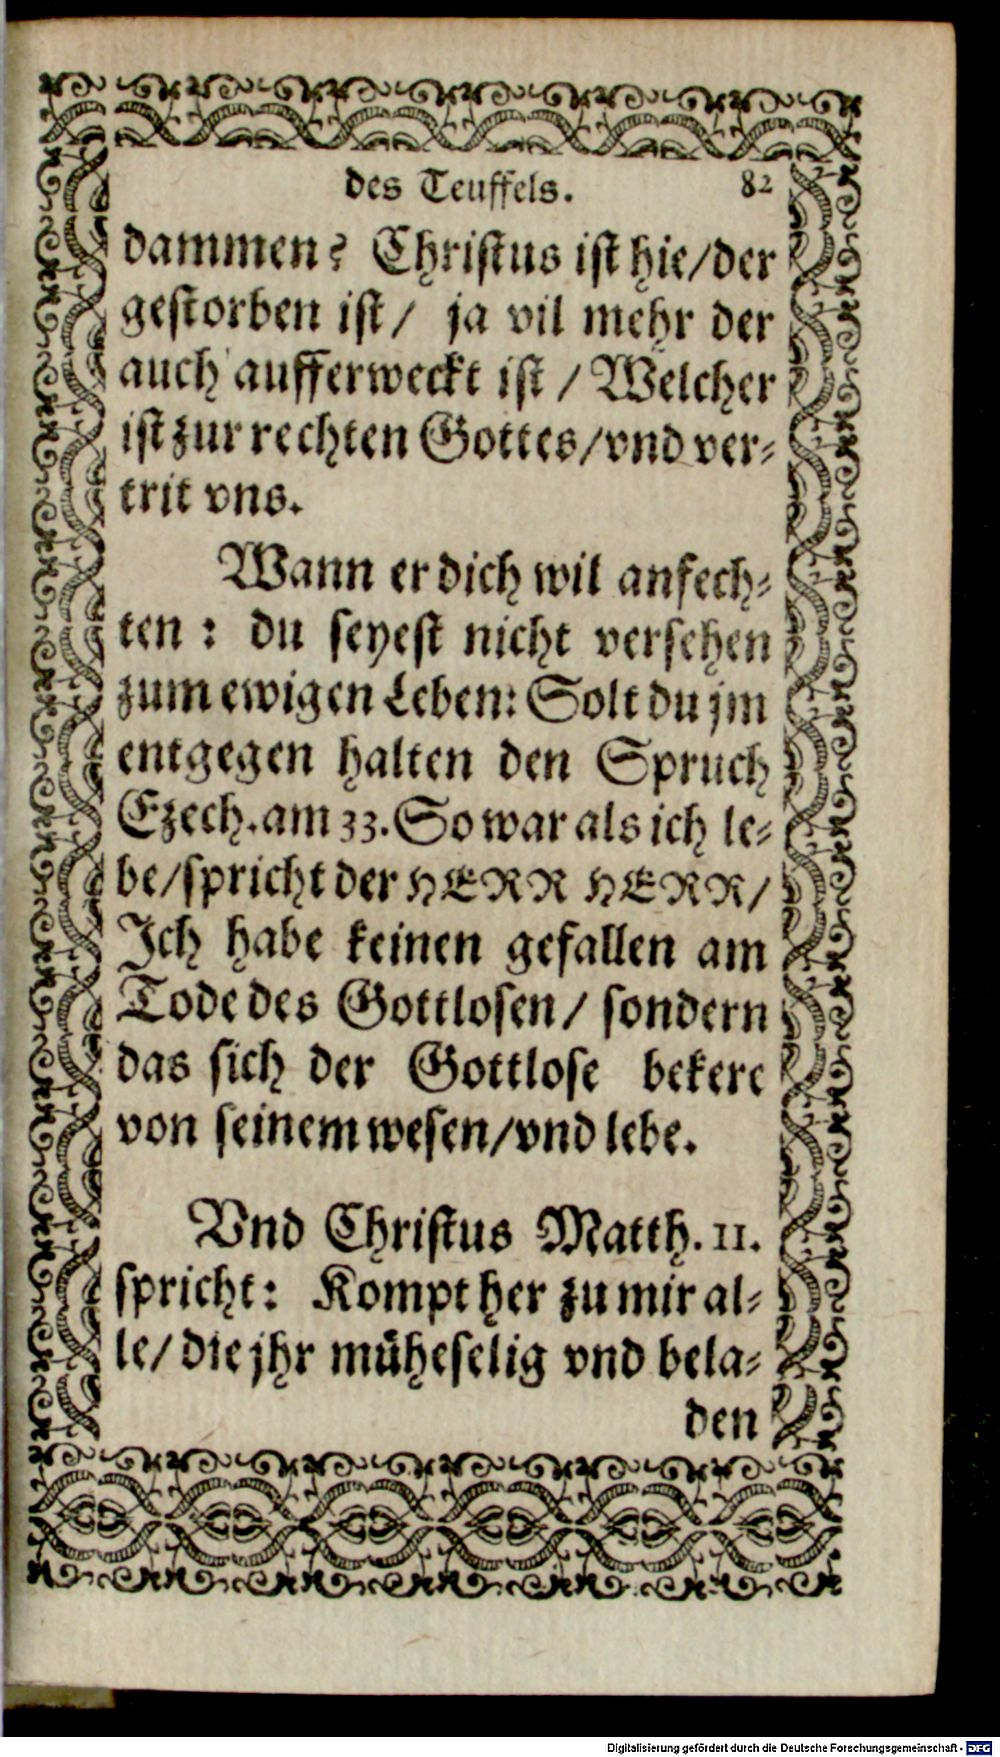 des Teuffels. 82
dammen? Christus ist hie/der
gestorben ist/ ja vil mehr der
auch aufferweckt ist / Welcher
ist zur rechten Gottes/vnd ver-
trit vns.
Wann er dich wil anfech-
ten : du seyest nicht versehen
zum ewigen Leben: Solt du jm
entgegen halten den Spruch
Ezech. am 33. So war als ich le-
be/spricht der HERR HERR/
Ich habe keinen gefallen am
Tode des Gottlosen/ sondern
das sich der Gottlose bekere
von seinem wesen/vnd lebe.
Vnd Christus Matth. 11.
spricht: Kompt her zu mir al-
le/ die jhr müheselig vnd bela-
den
Digitalisierung gefördert durch die Deutsche Forschungsgemeinschaft - DFG